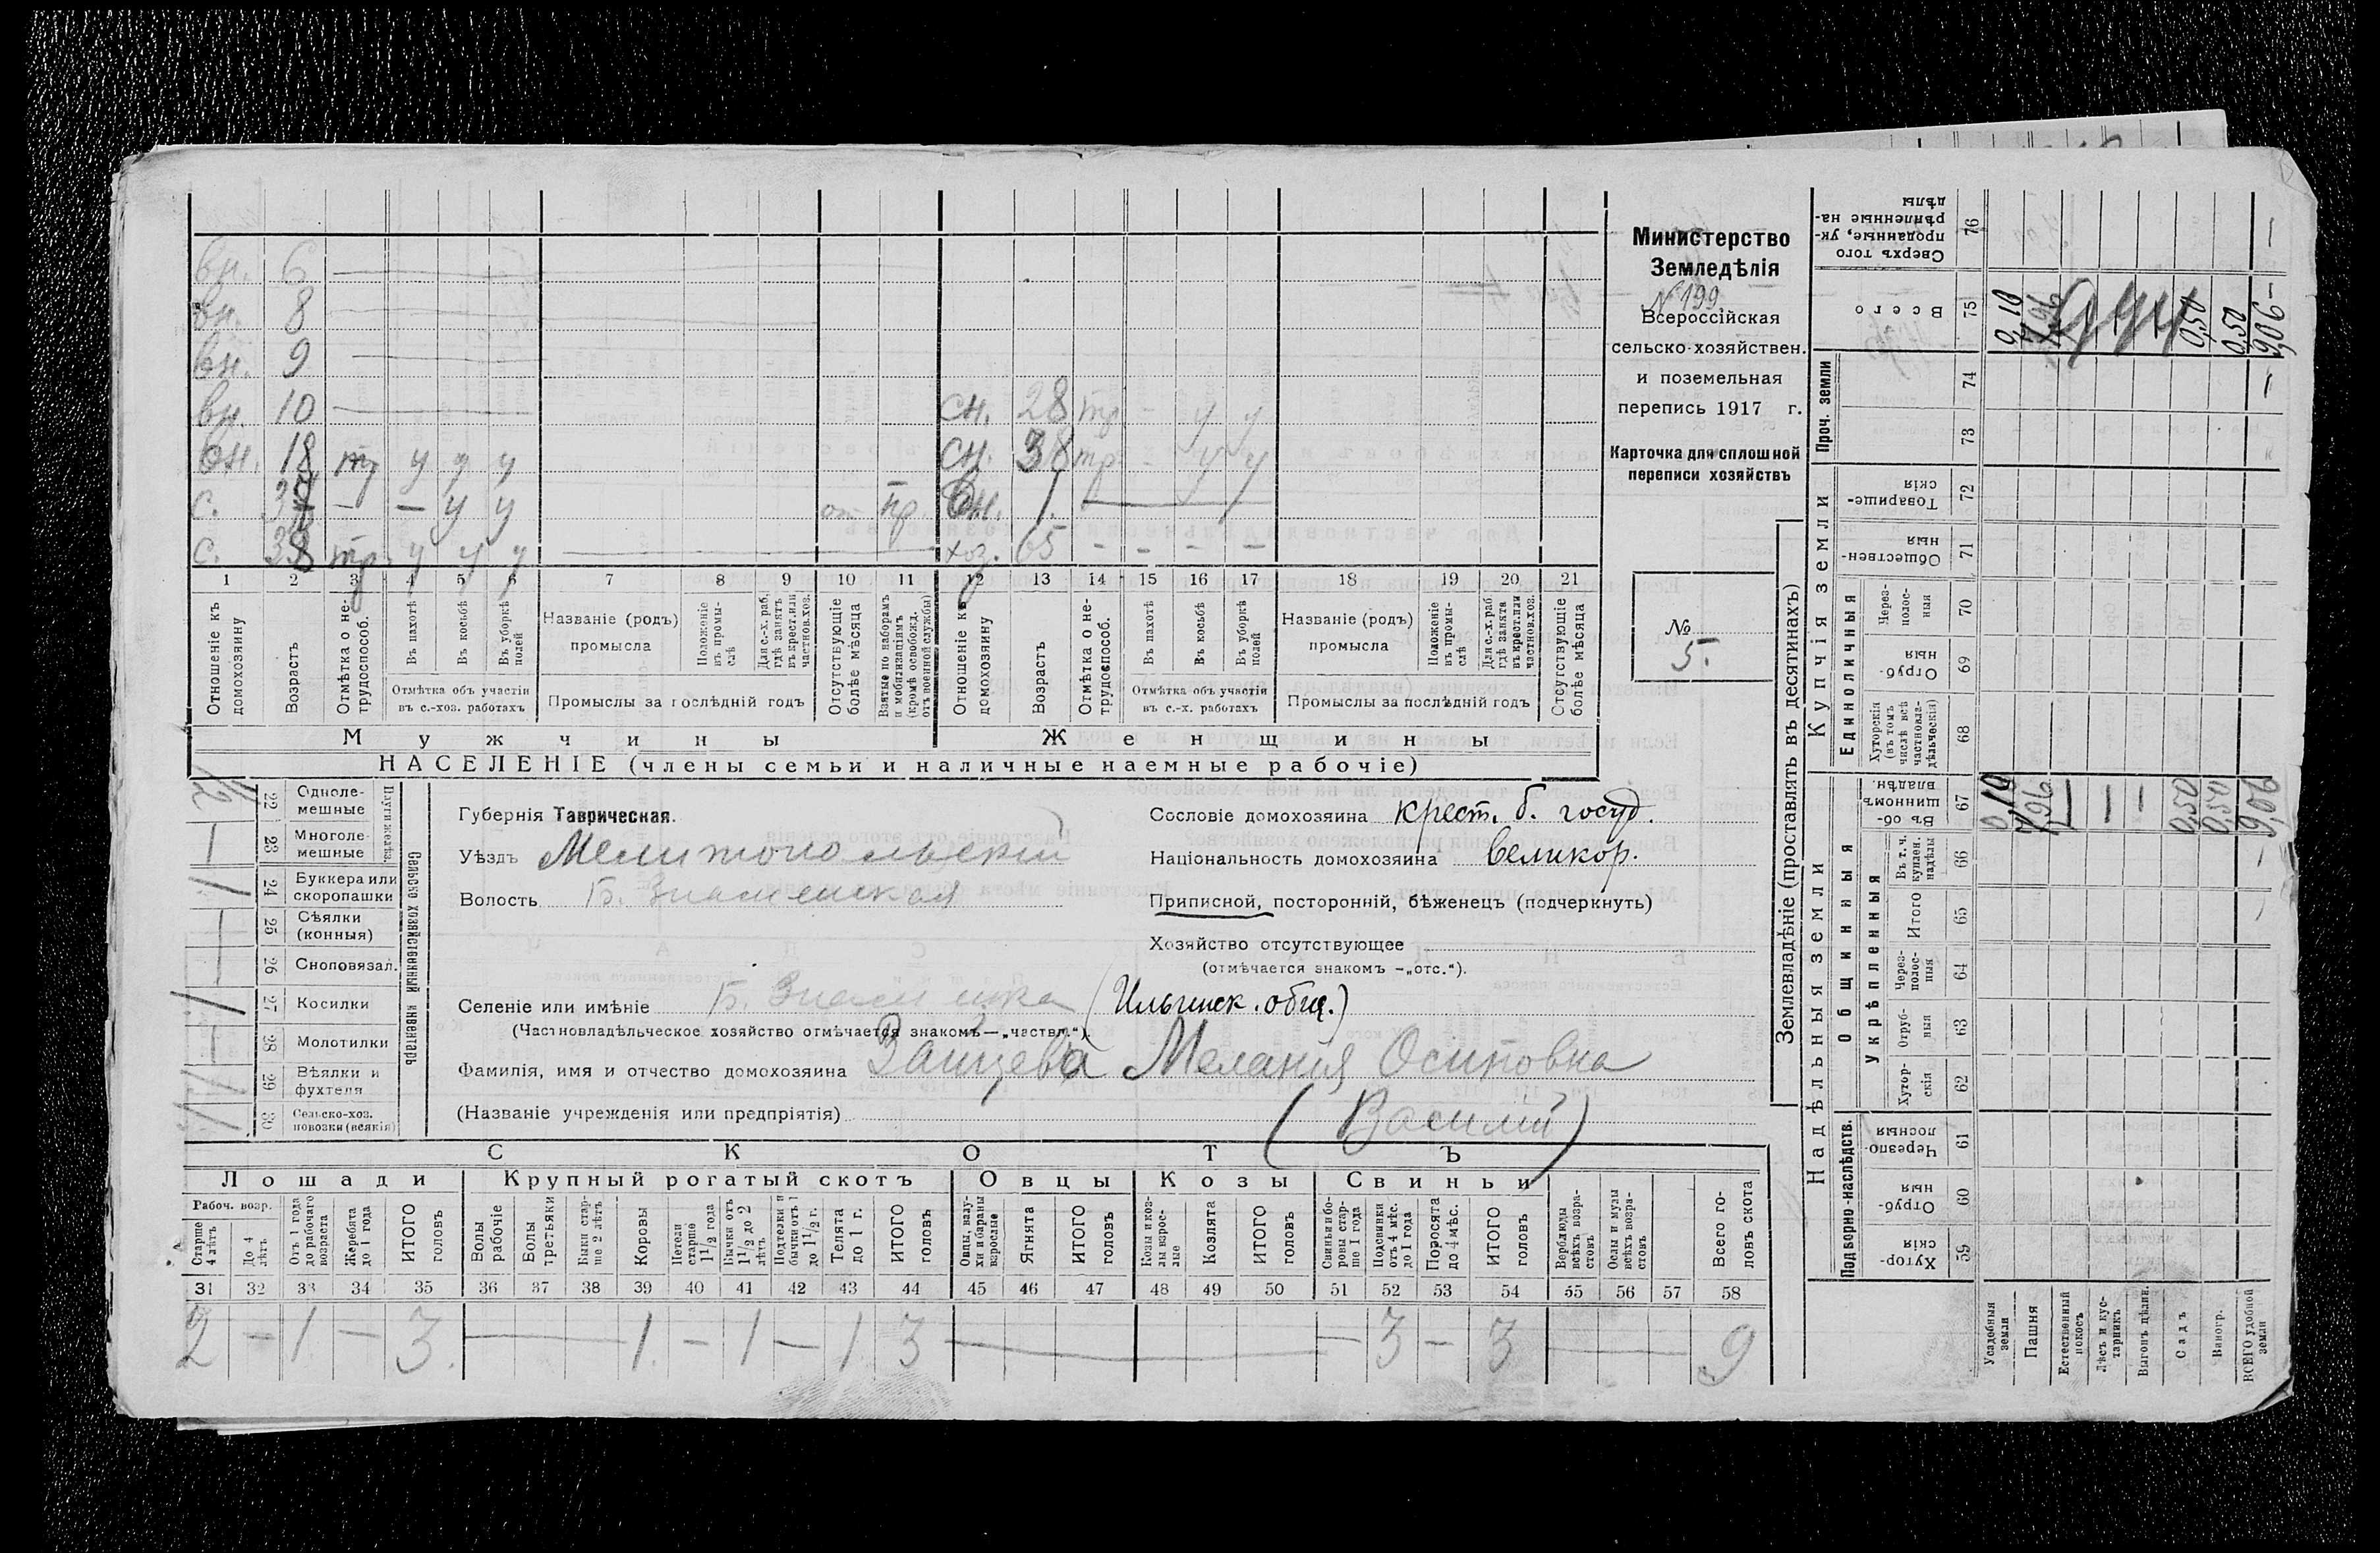 Министерство
Земледѣлія
№ 199
Всероссійская
сельско-хозяйствен.
и поземельная
перепись 1917 г.
Карточка для сплошной
переписи хозяйствъ
№
5.
вн. 6
вн. 8
вн. 9
вн. 10
сн. 28 тр - у у
вн. 18 тр у у у
сн. 38 тр - у у
с. — — у у от пр.
вн. 1.
с. 38 тр. у у у
хоз. 65 - - - -
1 2 3 4 5 6 7 8 9 10 11 12 13 14 15 16 17 18 19 20 21
Отношеніе къ домохозяину
Возрастъ
Отмѣтка о не-трудоспособ.
Въ пахотѣ
Въ косьбѣ
Въ уборкѣ полей
Отмѣтка объ участіи въ с.-хоз. работахъ
Названіе (родъ) промысла
Положеніе въ промы-слѣ
Для с.-х. раб. гдѣ занятъ въ крест. или частнов. хоз.
Промыслы за послѣдній годъ
Отсутствующіе болѣе мѣсяца
Взятые по наборамъ и мобилизаціямъ (кромѣ освобожд. отъ военной службы)
Отношеніе къ домохозяину
Возрастъ
Отмѣтка о не-трудоспособ.
Въ пахотѣ
Въ косьбѣ
Въ уборкѣ полей
Отмѣтка объ участіи въ с.-х. работахъ
Названіе (родъ) промысла
Положеніе въ промы-слѣ
Для с.-х. раб. гдѣ занята въ крест. или частнов. хоз.
Промыслы за послѣдній годъ
Отсутствующіе болѣе мѣсяца
Мужчины Женщины
НАСЕЛЕНІЕ (члены семьи и наличные наемные рабочіе)
Сельско хозяйственный инвентарь
Плуги желѣз.
22 Одноле-мешные
23 Многоле-мешные
24 Буккера или скоропашки
25 Сѣялки (конныя)
26 Сноповязал.
27 Косилки
28 Молотилки
29 Вѣялки и фухтеля
30 Сельско-хоз. повозки (всякія)
Губернія Таврическая.
Уѣздъ Мелитопольскій
Волость Б. Знаменская
Сословіе домохозяина крест. б. госуд.
Національность домохозяина великор.
Приписной, посторонній, бѣженецъ (подчеркнуть)
Хозяйство отсутствующее
(отмѣчается знакомъ —„отс.“).
Селеніе или имѣніе Б. Знаменка (Ильинск. общ.)
(Частновладѣльческое хозяйство отмѣчается знакомъ—„частвл.“).
Фамилія, имя и отчество домохозяина Заицева Мелания Осиповна
(Названіе учрежденія или предпріятія)
(Василій)
СКОТЪ
Лошади Крупный рогатый скотъ Овцы Козы Свиньи
Рабоч. возр.
Старше 4 лѣтъ
До 4 лѣтъ
Отъ 1 года до рабочаго возраста
Жеребята до 1 года
ИТОГО головъ
Волы рабочіе
Волы третьяки
Быки стар-ше 2 лѣтъ
Коровы
Нетели старше 1 1/2 года
Бычки отъ 1 1/2 до 2 лѣтъ
Подтелки и бычки отъ 1 до 1 1/2 г.
Телята до 1 г.
ИТОГО головъ
Овцы, валу-хи и бараны взрослые
Ягнята
ИТОГО головъ
Козы и коз-лы взрос-лые
Козлята
ИТОГО головъ
Свиньи и бо-ровы стар-ше 1 года
Подсвинки отъ 4 мѣс. до 1 года
Поросята до 4 мѣс.
ИТОГО головъ
Верблюды всѣхъ возра-стовъ
Ослы и мулы всѣхъ возра-стовъ
Всего го-ловъ скота
31 32 33 34 35 36 37 38 39 40 41 42 43 44 45 46 47 48 49 50 51 52 53 54 55 56 57 58
2 — 1 — 3. — 1. — 1 — 1 3 — 3 — 3 — 9
Землевладѣніе (проставлять въ десятинахъ)
Надѣльныя земли
Купчія земли
Проч. земли
Подворно-наслѣдств.
Общинныя
Укрѣпленныя
Единоличныя
59 Хутор-скія
60 Отруб-ныя
61 Черезпо-лосныя
62 Хутор-скія
63 Отруб-ныя
64 Через-полос-ныя
65 Итого
66 Въ т. ч. куплен. надѣлы
67 Въ об-щинномъ владѣн.
68 Хуторскія (въ томъ числѣ всѣ частновла-дѣльческія)
69 Отруб-ныя
70 Через-полос-ныя
71 Обществен-ныя
72 Товарище-скія
73
74
75 Всего
76 Сверхъ того проданные, ук-рѣпленные на-дѣлы
Усадебныя земли
Пашня
Естественный покосъ
Лѣсъ и кус-тарникъ
Выгонъ дѣлин.
Садъ
Виногр.
ВСЕГО удобной земли
0,10
7,96
0,50
0,50
9,06
0,10
7,96
0,50
0,50
9,06